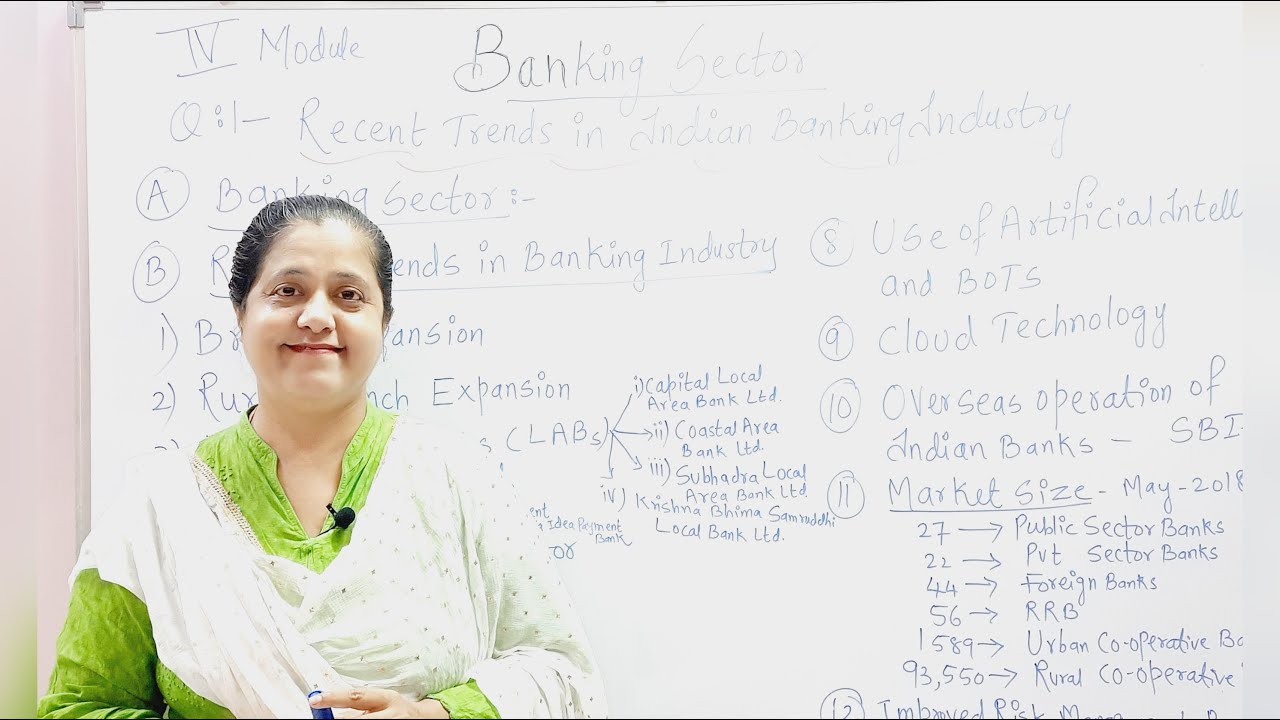 IV Module
Banking Sector
Q:1- Recent Trends in Indian Banking Industry
A Banking Sector:-
B R ends in Banking Industry
1) Br pansion
2) Rur nch Expansion
s (LABs)
i) Capital Local
Area Bank Ltd.
ii) Coastal Area
Bank Ltd.
iii) Subhadra Local
Area Bank Ltd
iv) Krishna Bhima Samruddhi
Local Bank Ltd.
ent
Idea Payment
Bank
or
8 Use of Artificial Intell
and BOTs
9 Cloud Technology
10 Overseas operation of
Indian Banks - SBI-
11 Market Size - May-2018
27 → Public Sector Banks
22 → Pvt Sector Banks
44 → Foreign Banks
56 → RRB
1589 → Urban Co-operative Ba
93,550 → Rural Co-operative
12 Improved Risk